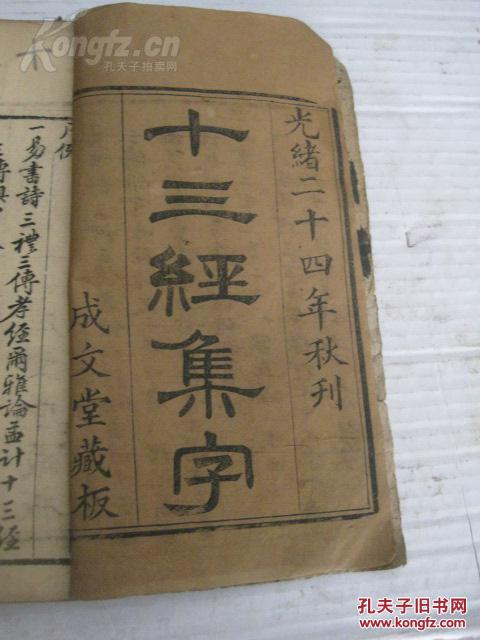 光緒二十四年秋刊
十三經集字
成文堂藏板
一易書詩三禮三傳孝經爾雅論孟計十三經
Kongfz.cn
孔夫子拍卖网
孔夫子旧书网
www.kongfz.com